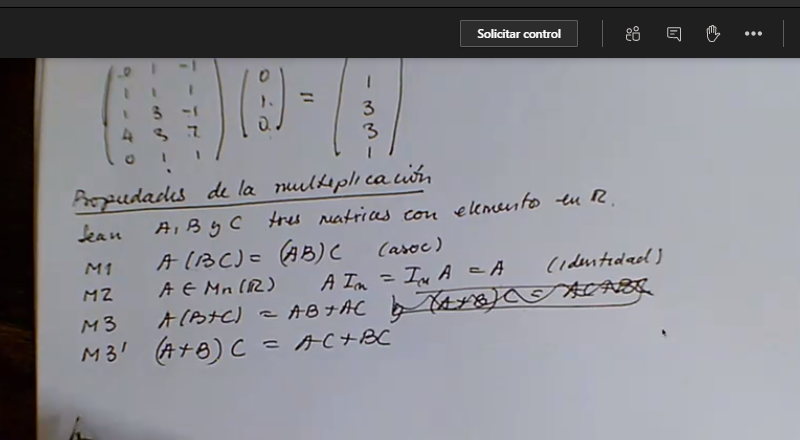 Solicitar control
0 1 -1 0
1 1 1 1. = 1
1 3 -1 0. 3
4 3 7 3
0 1 1 1
Propiedades de la multiplicación
Sean A, B y C tres matrices con elemento en R.
M1 A(BC) = (AB)C (asoc)
M2 A ∈ Mn(R) A In = In A = A (identidad)
M3 A(B+C) = AB+AC y (A+B)C = AC+BC
M3' (A+B)C = AC+BC